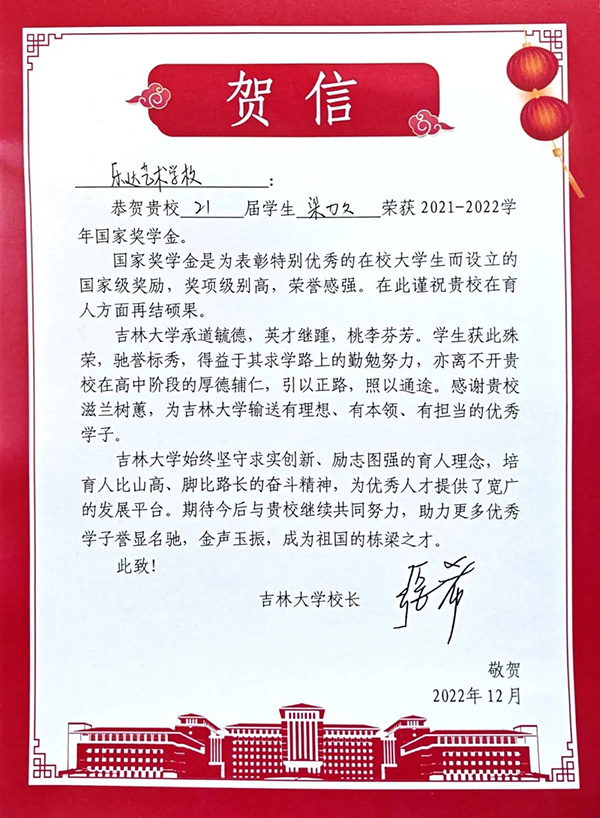 贺信
乐达艺术学校：
恭贺贵校21届学生梁力久荣获2021-2022学
年国家奖学金。
国家奖学金是为表彰特别优秀的在校大学生而设立的
国家级奖励，奖项级别高，荣誉感强。在此谨祝贵校在育
人方面再结硕果。
吉林大学承道毓德，英才继踵，桃李芬芳。学生获此殊
荣，驰誉标秀，得益于其求学路上的勤勉努力，亦离不开贵
校在高中阶段的厚德辅仁，引以正路，照以通途。感谢贵校
滋兰树蕙，为吉林大学输送有理想、有本领、有担当的优秀
学子。
吉林大学始终坚守求实创新、励志图强的育人理念，培
育人比山高、脚比路长的奋斗精神，为优秀人才提供了宽广
的发展平台。期待今后与贵校继续共同努力，助力更多优秀
学子誉显名驰，金声玉振，成为祖国的栋梁之才。
此致！
吉林大学校长 张希
敬贺
2022年12月